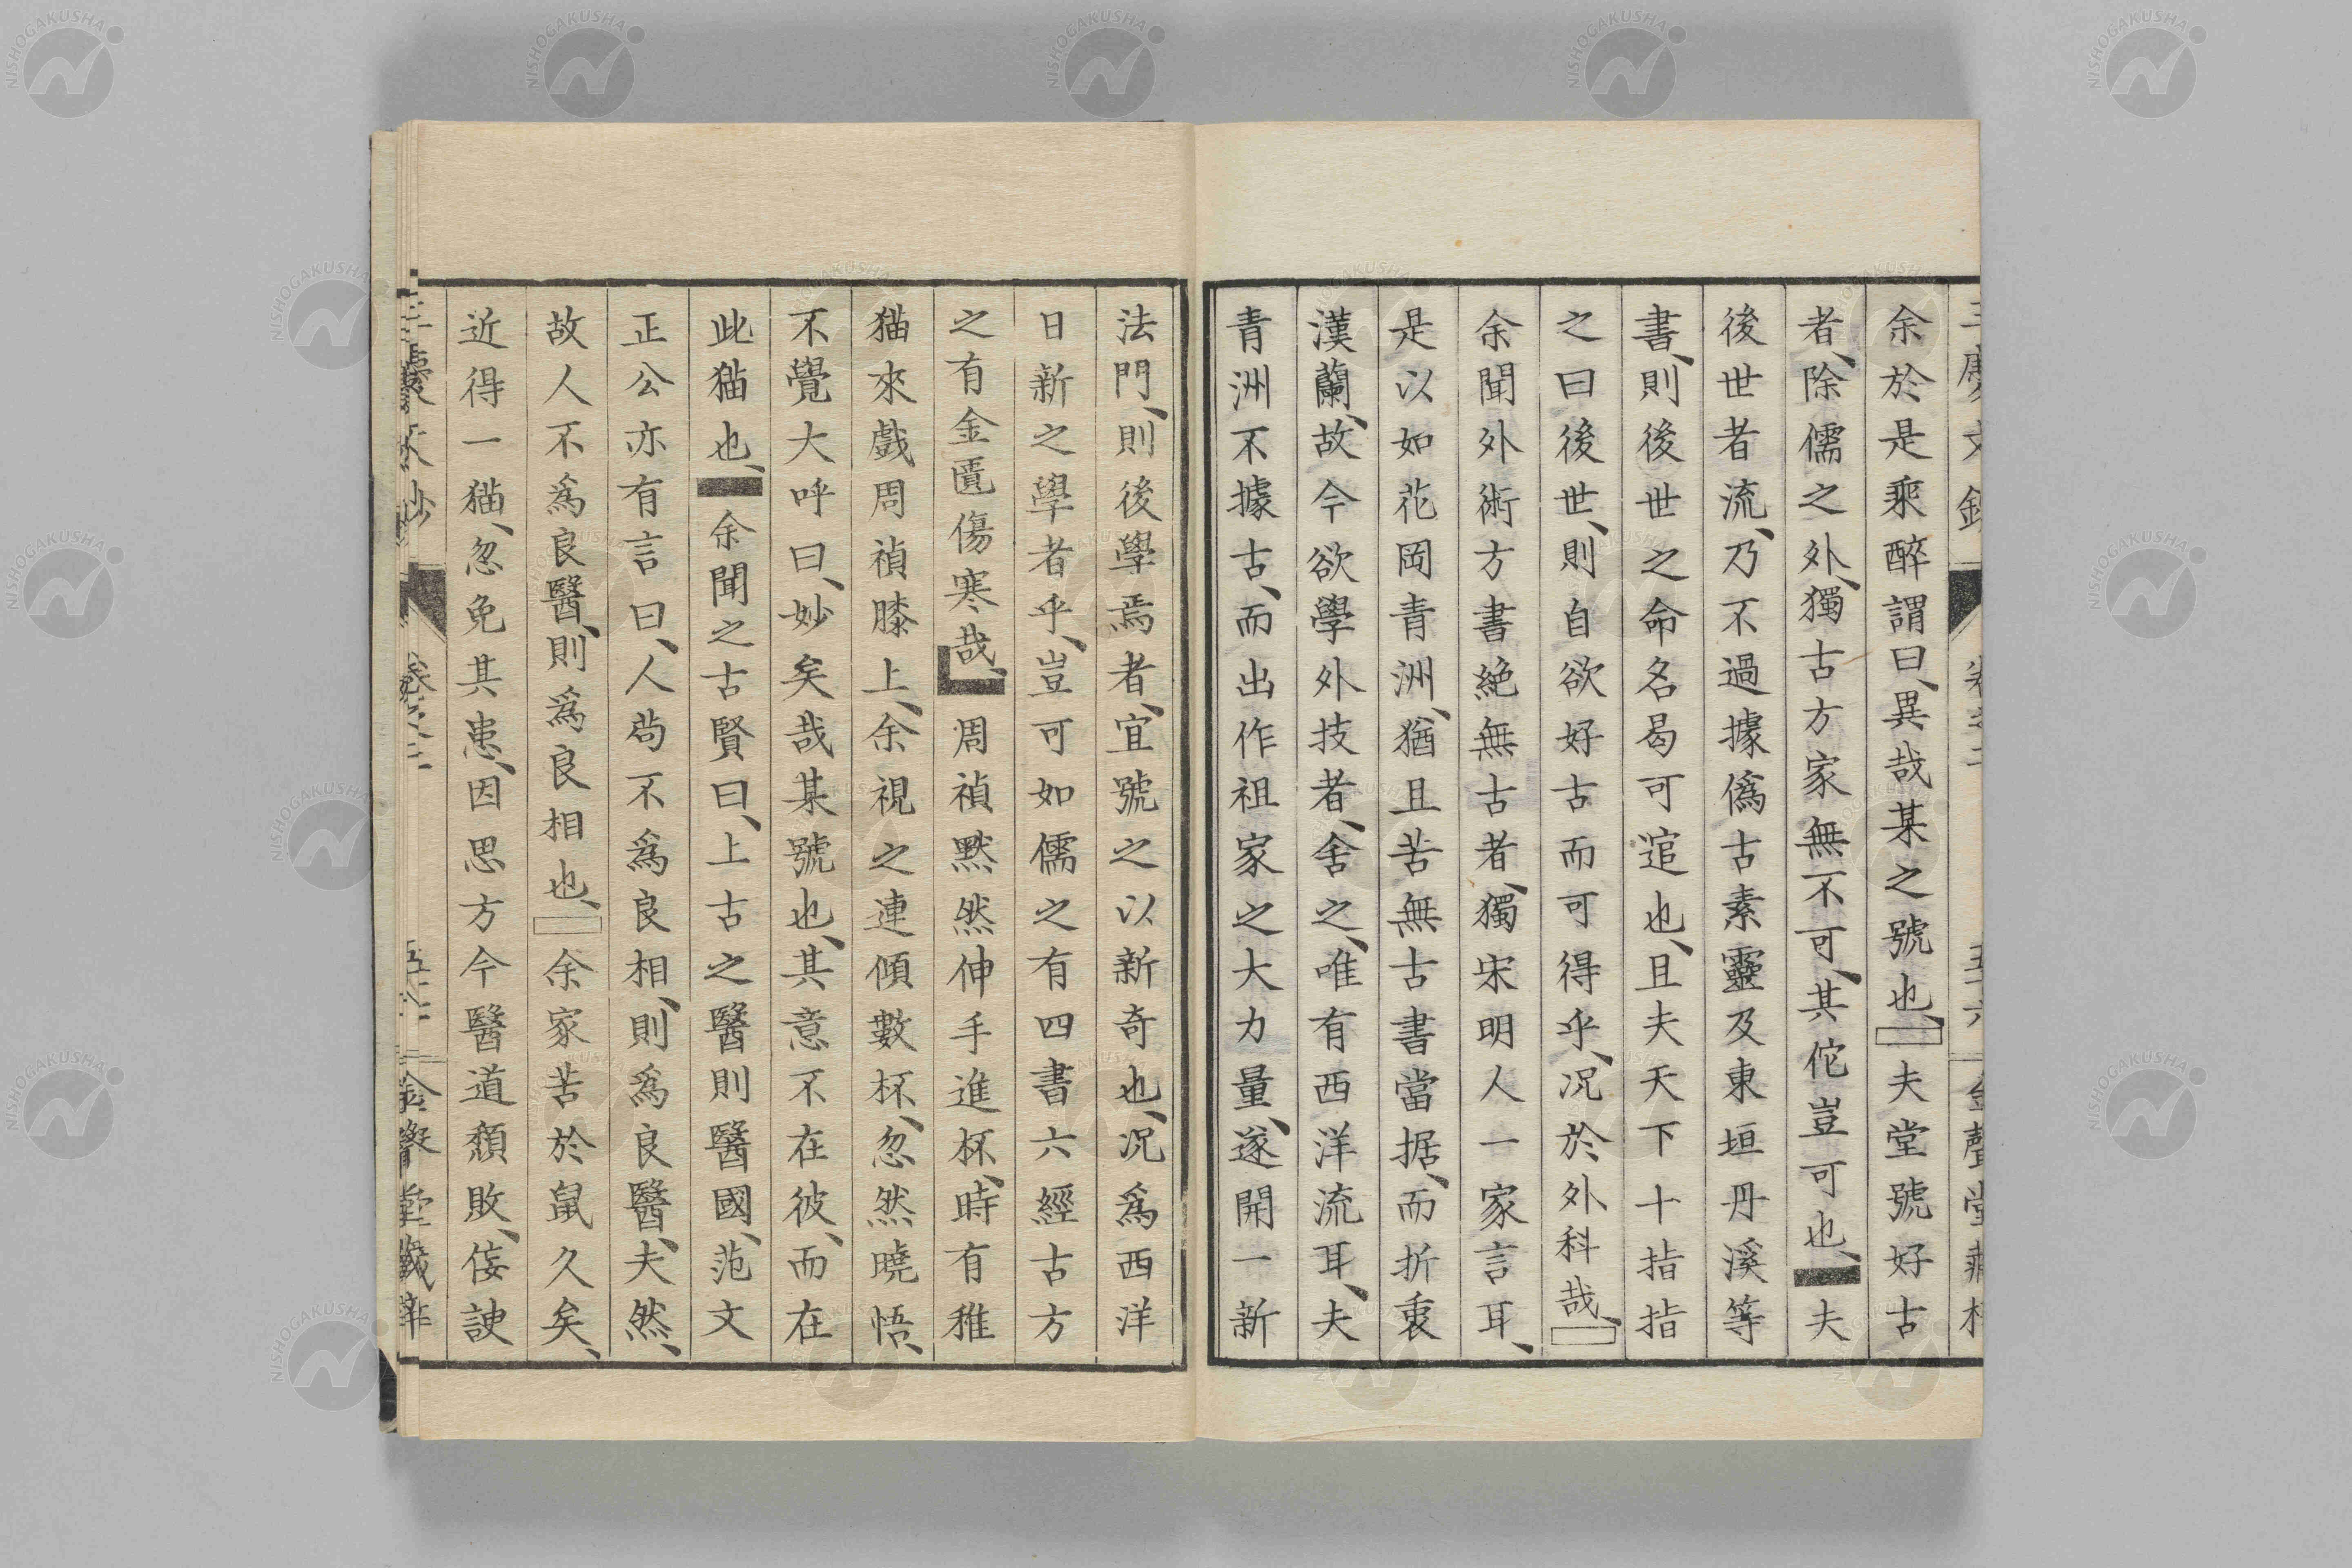 余於是乘醉謂曰、異哉某之號也、夫堂號好古
者、除儒之外、獨古方家無不可、其佗豈可也、夫
後世者流、乃不過據僞古素靈及東垣丹溪等
書、則後世之命名曷可逭也、且夫天下十指指
之曰後世、則自欲好古而可得乎、况於外科哉、
余聞外術方書絶無古者、獨宋明人一家言耳、
是以如花岡青洲、猶且苦無古書當据、而折衷
漢蘭、故今欲學外技者、舍之、唯有西洋流耳、夫
青洲不據古、而出作祖家之大力量、遂開一新
法門、則後學焉者、宜號之以新奇也、况爲西洋
日新之學者乎、豈可如儒之有四書六經古方
之有金匱傷寒哉、周禎默然伸手進杯、時有稚
猫來戲周禎膝上、余視之連傾數杯、忽然曉悟、
不覺大呼曰、妙矣哉某號也、其意不在彼、而在
此猫也、余聞之古賢曰、上古之醫則醫國、范文
正公亦有言曰、人苟不爲良相、則爲良醫、夫然、
故人不爲良醫、則爲良相也、余家苦於鼠久矣、
近得一猫、忽免其患、因思方今醫道頽敗、侫諛